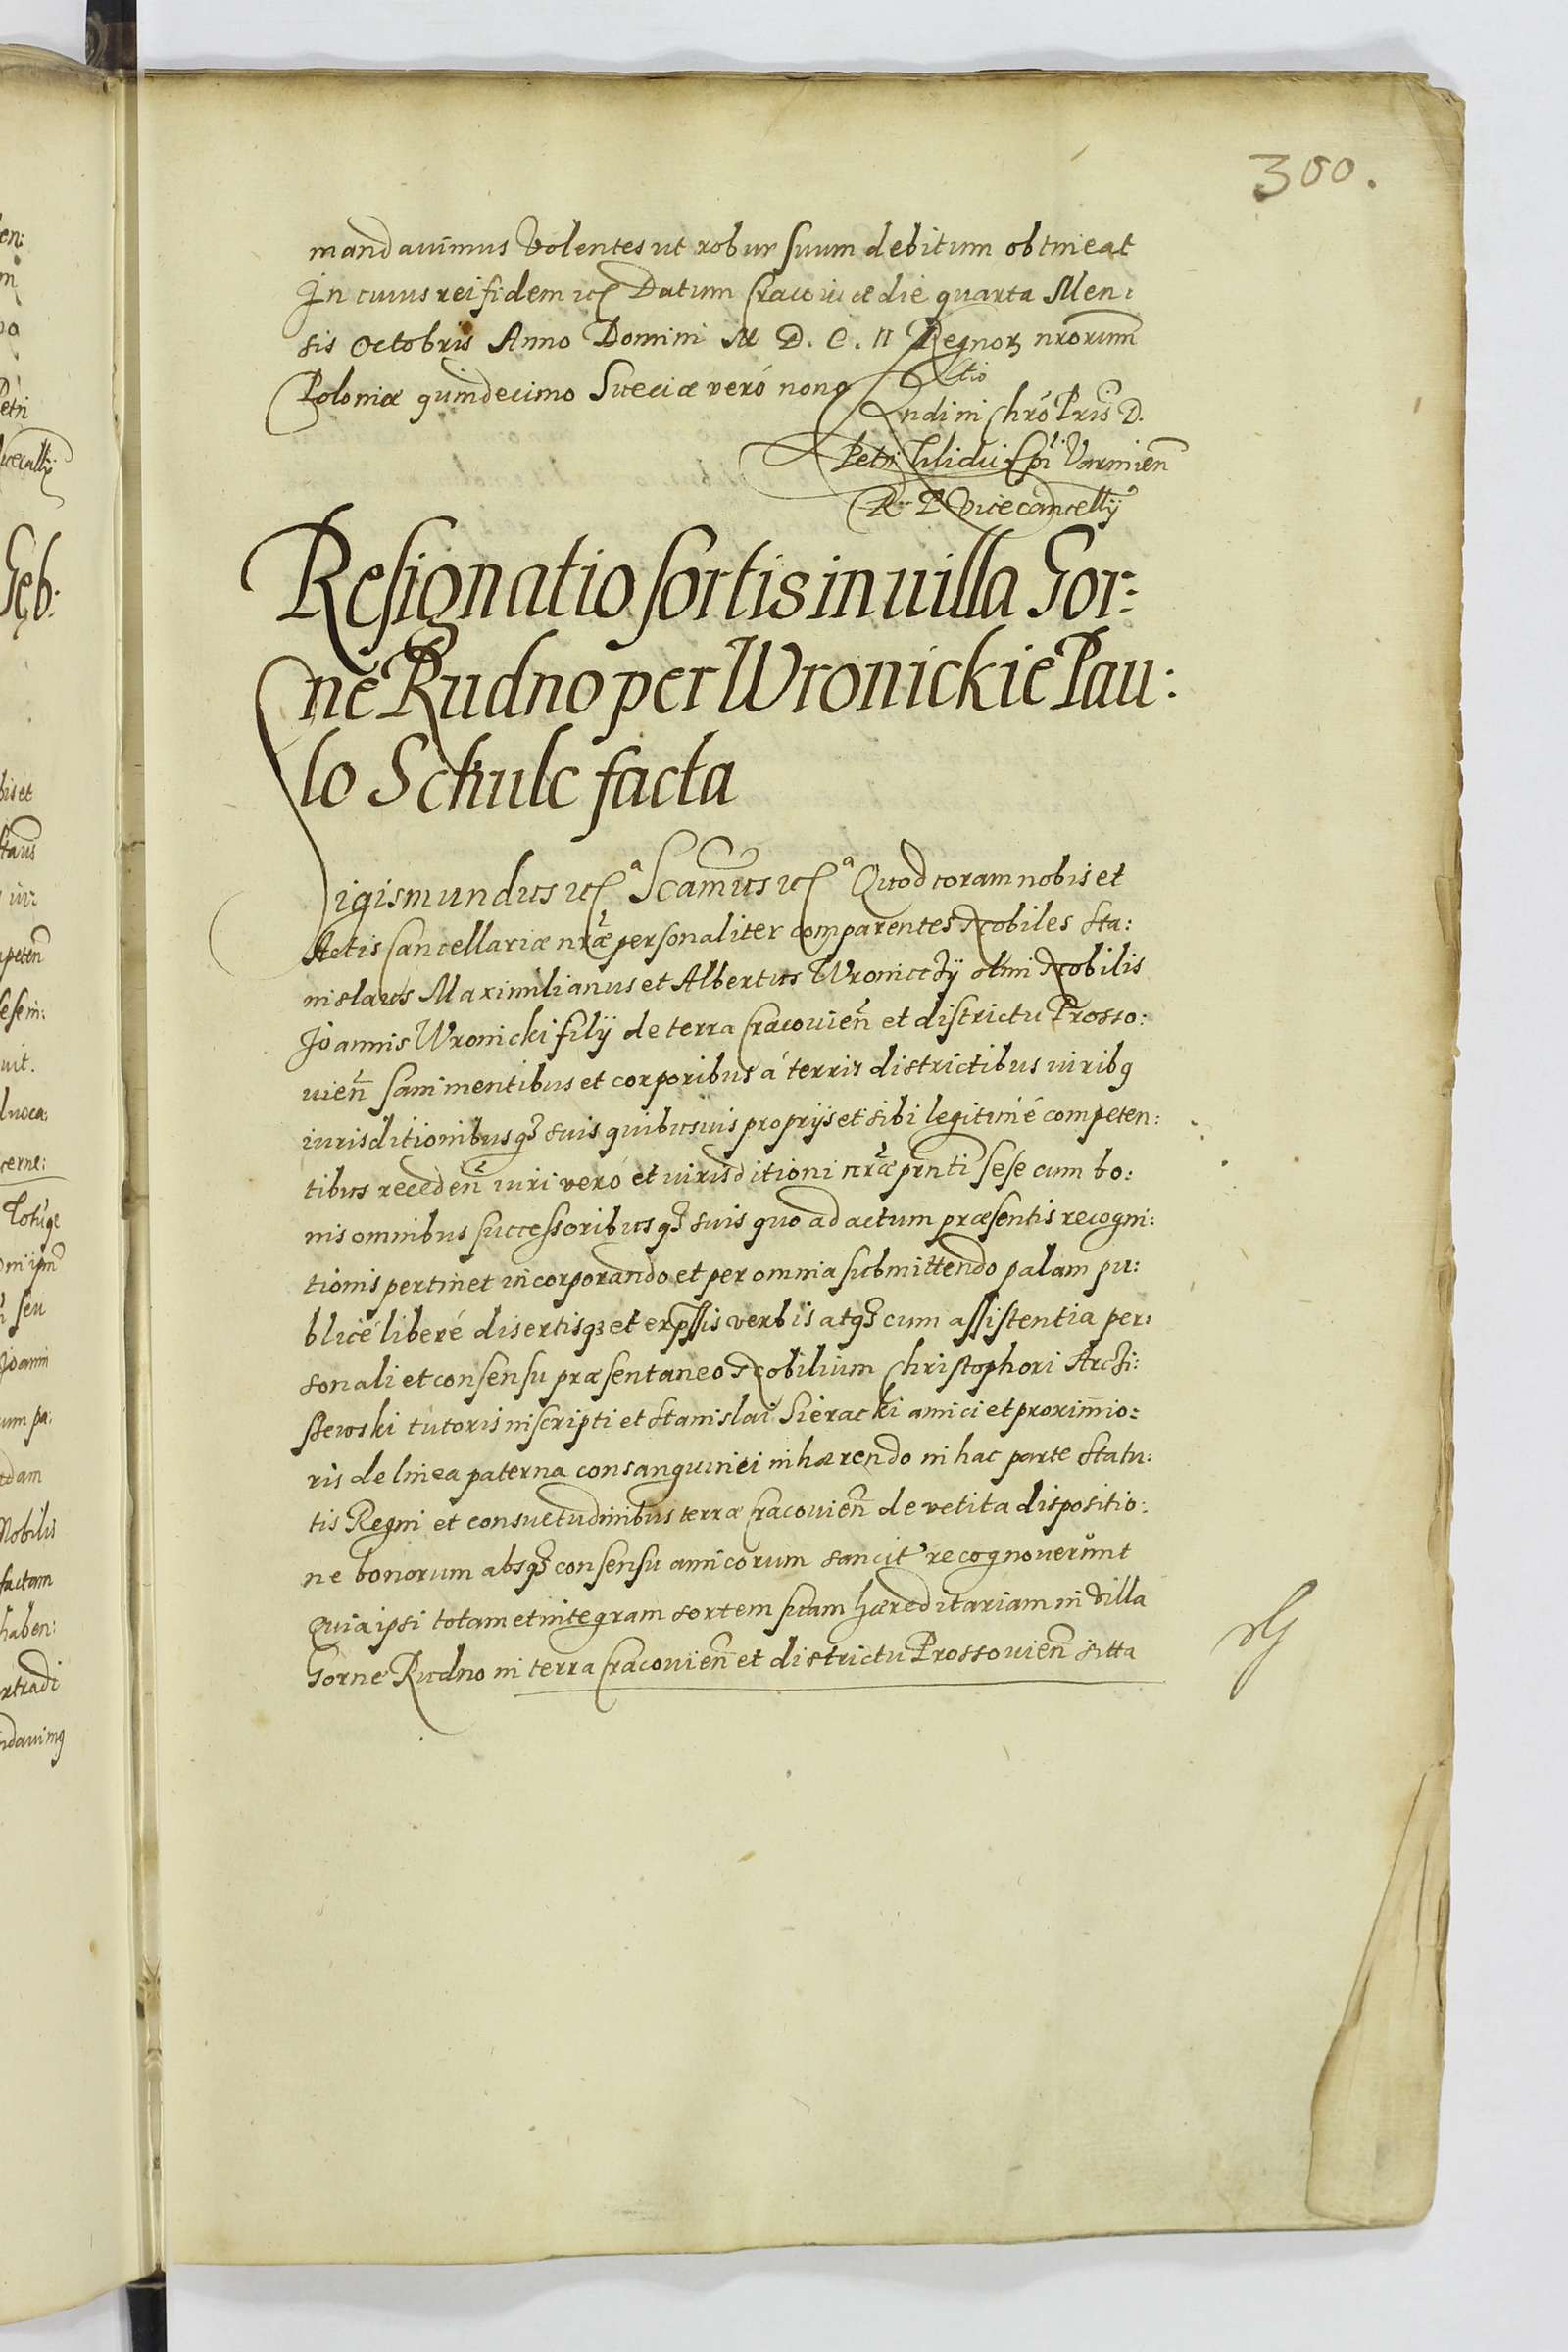 300.
mandauimus Volentes ut robur suum debitum obtineat
In cuius rei fidem etc Datum Cracouiæ die quarta Men:
sis Octobris Anno Domini M D. C. II Regnor nrorum
Poloniæ quindecimo Sueciæ veró nono
Rltio
Rndi in Chrō Pris D.
Petri Tilicii Epi Varmien
R. P. Vicecancellÿ
Resignatio sortis in uilla Gor:
ne Rudno per Wronickie Pau:
lo Schulc facta
Sigismundus etc a Scamus etc a Quod coram nobis et
Actis Cancellariæ nræ personaliter comparentes Nobiles Sta:
nislaus Maximilianus et Albertus Wroniccÿ olim Nobilis
Joannis Wronicki filÿ de terra Cracouien et districtu Prosso:
uien sani mentibus et corporibus á terris districtibus iuribq
iurisditionibusq suis quibusuis proprÿs et sibi legitimé competen:
tibus receden iuri veró et iurisditioni nræ prnti sese cum bo:
nis omnibus successoribusq suis quo ad actum præsentis recogni:
tionis pertinet incorporando et per omnia submittendo palam pu:
blicé liberé disertisq et expssis verbis atq cum assistentia per:
sonali et consensu præsentaneo Nobilium Christophori Arci:
szewski tutoris inscripti et Stanislai Sieracki amici et proximio:
ris de linea paterna consanguinei inhærendo in hac parte Statu:
tis Regni et consuetudinibus terræ Cracouien de vetita dispositio:
ne bonorum absq consensu amicorum sancit' recognouerunt
Quia ipsi totam et integram sortem suam hæreditariam in Villa
Gorne Rudno in terra Cracouien et districtu Prossouien sitta